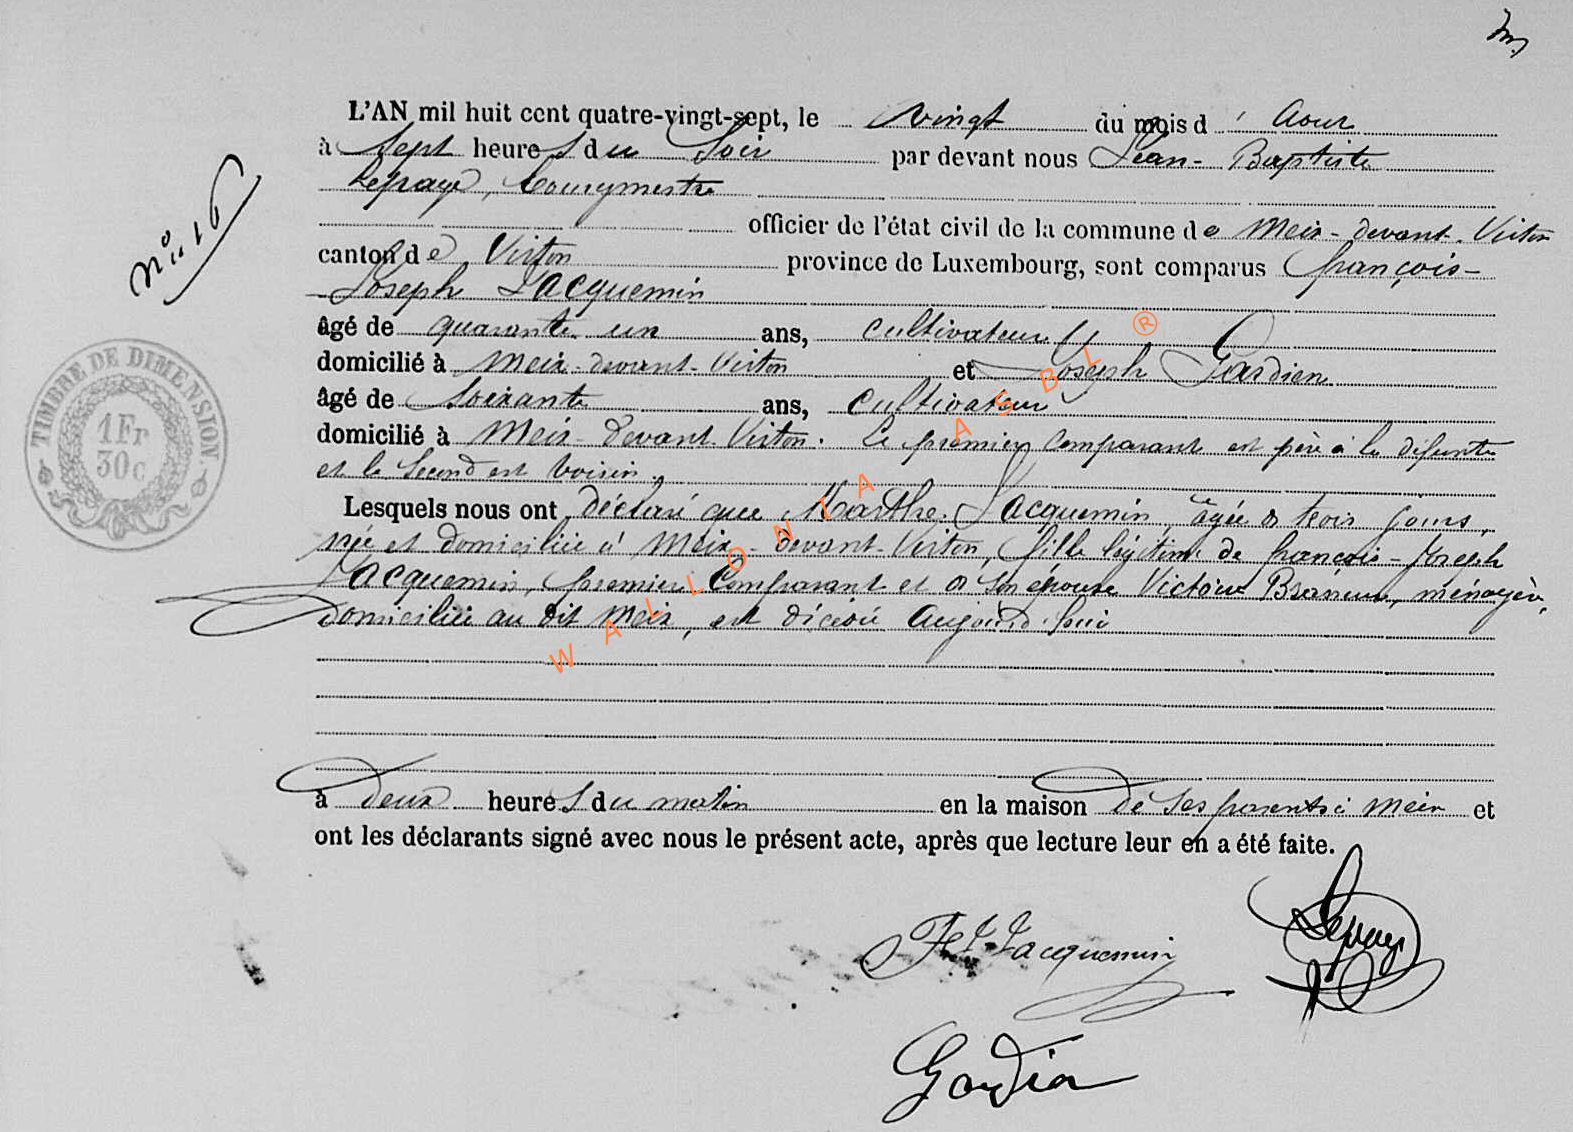 L'AN mil huit cent quatre-vingt-sept, le vingt du mois d'Aout
à Sept heures du Soir par devant nous Jean-Baptiste
Lepage, bourgmestre
officier de l'état civil de la commune de Meix-devant-Virton
canton de Virton province de Luxembourg, sont comparus françois-
Joseph Jacquemin
âgé de quarante un ans, cultivateur
domicilié à Meix-devant-Virton et Joseph Gardien
âgé de Soixante ans, cultivateur
domicilié à Meix-devant-Virton. Le premier comparant est père à la défunte
et le Second est voisin.
Lesquels nous ont déclaré que Marthe Jacquemin, âgée de trois jours,
née et domiciliée à Meix-devant-Virton, fille légitime de françois-Joseph
Jacquemin, premier Comparant et de son épouse Victoire ménagère,
domiciliée au dit Meix, est décédé aujourd'hui
à deux heures du matin en la maison de ses parents à Meix et
ont les déclarants signé avec nous le présent acte, après que lecture leur en a été faite.
Jacquemin
Lepage
Gardien
N° 16
TIMBRE DE DIMENSION.
1Fr
30c
WALLONIA ASBL ®